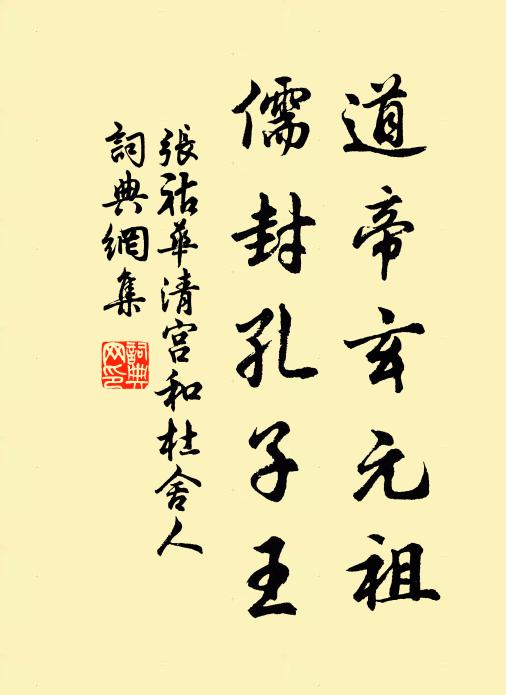 道帝玄元祖
儒封孔子王
張祜華清宮和杜舍人
詞典網集
詞典网印